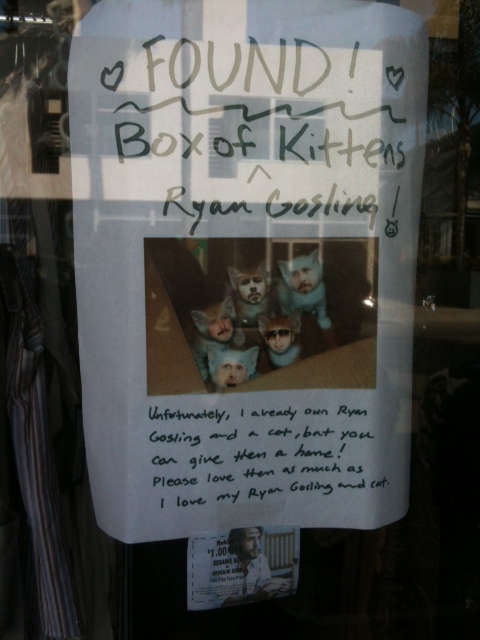 FOUND!
Box of Kittens
^
Ryan Gosling!
Unfortunately, I already own Ryan
Gosling and a cat, but you
can give them a home!
Please love them as much as
I love my Ryan Gosling and cat.
$1.00
SESAME